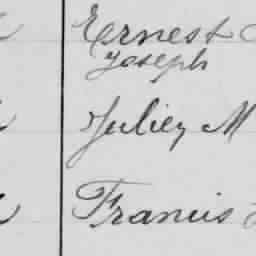 Ernest
Joseph
Juliey M
Francis